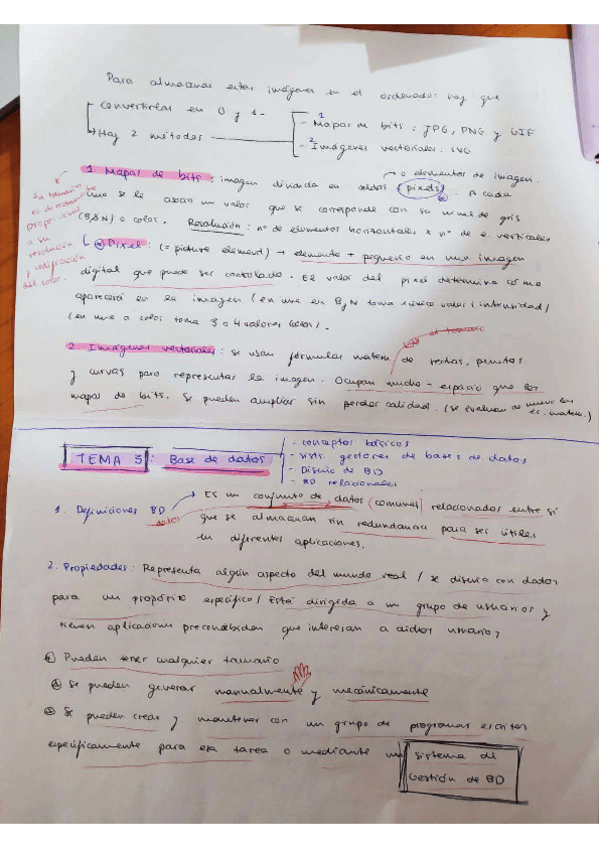 Para almacenar estas imágenes en el ordenador hay que
convertirlas en 0 y 1.
→ Hay 2 métodos
1 - Mapas de bits: JPG, PNG y GIF
2 - Imágenes vectoriales: SVG
→ o elementos de imagen.
1. Mapas de bits: imagen dividida en celdas (pixels). A cada
uno se le asocia un valor que se corresponde con su nivel de gris
(ByN) o color. Resolución: nº de elementos horizontales x nº de e. verticales
Su tamaño
es directamente
proporcional
a su
resolución
y codificación
del color.
Pixel: (= picture element) → elemento + pequeño en una imagen
digital que puede ser controlado. El valor del pixel determina cómo
aparecerá en la imagen (en una en ByN toma un único valor (intensidad)
(en una a color toma 3 o 4 valores (color).
el tamaño
2. Imágenes vectoriales: se usan fórmulas matem de rectas, puntos
y curvas para representar la imagen. Ocupan mucho - espacio que los
mapas de bits. Se pueden ampliar sin perder calidad. (se evalúan de nuevo las
ec. matem.)
TEMA 5: Base de datos
- conceptos básicos
- sist. gestores de bases de datos
- Diseño de BD
- BD relacionales
1. Definiciones BD → Es un conjunto de datos (comunes) relacionados entre sí
datos
que se almacenan sin redundancia para ser útiles
en diferentes aplicaciones.
2. Propiedades: Representa algún aspecto del mundo real / se diseña con datos
para un propósito específico / Está dirigida a un grupo de usuarios y
tienen aplicaciones preconcebidas que interesan a dichos usuarios /
Pueden tener cualquier tamaño
Se pueden generar manualmente y mecánicamente
Se pueden crear y mantener con un grupo de programas escritos
específicamente para esa tarea o mediante un sistema de
Gestión de BD